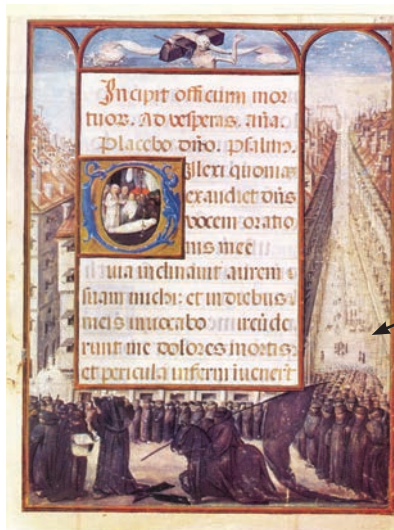 Incipit officium mor
tuor. Ad vesperas. aña.
Placebo dño. Psalm9.
Dilexi quoniā
exaudiet dñs
vocem oratio
nis mee
uia inclinavit aurem
suam michi: et in diebus
meis invocabo
runt me dolores mortis:
et pericula inferni